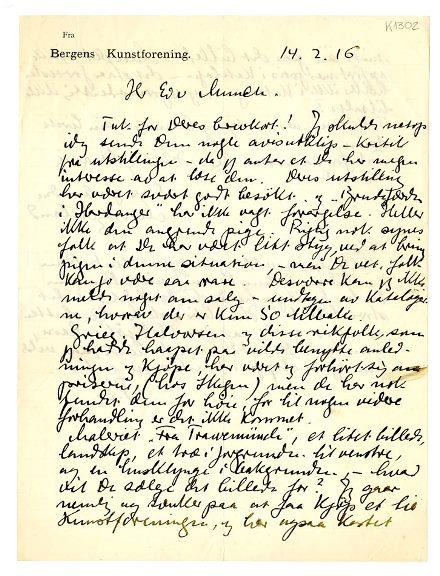 K1302
Fra
Bergens Kunstforening.
14. 2. 16
Hr Edv Munch.
Tak for Deres brevkort! Jeg skulde netop
idag sende Dem nogle avisutklip – kritik
fra utstillingen – da jeg antar at De har nogen
interesse av at læse dem. Deres utstilling
har været svært godt besøkt. og "Brudefærden
i Hardanger" har ikke vagt forargelse. Heller
ikke den angrende pige. Rigtig nok synes
folk at De har været litt stygg ved at bringe
pigen i denne situation – men De vet, folk
kan jo være saa rare. Desværre kan jeg ikke
melde noget om salg – undtagen av kataloger-
ne, hvorav der er kun 50 tilbake.
Grieg Halvorsen og disse rikfolk, som
jeg hadde haapet paa vilde benytte anled-
ningen og kjøpe, har været og forhørt sig om
priserne, (hos Skegen) men de har nok
fundet dem for høie, for til nogen videre
forhandling er det ikke kommet.
Maleriet "Fra Travemünde", et litet billede,
landskap, et træ i forgrunden til venstre,
og en husklynge i bakgrunden, – hvad
vil De sælge det billede for? Jeg gaar
nemlig og tænker paa at faa kjøpt et til
Kunstforeningen, og har ogsaa kastet